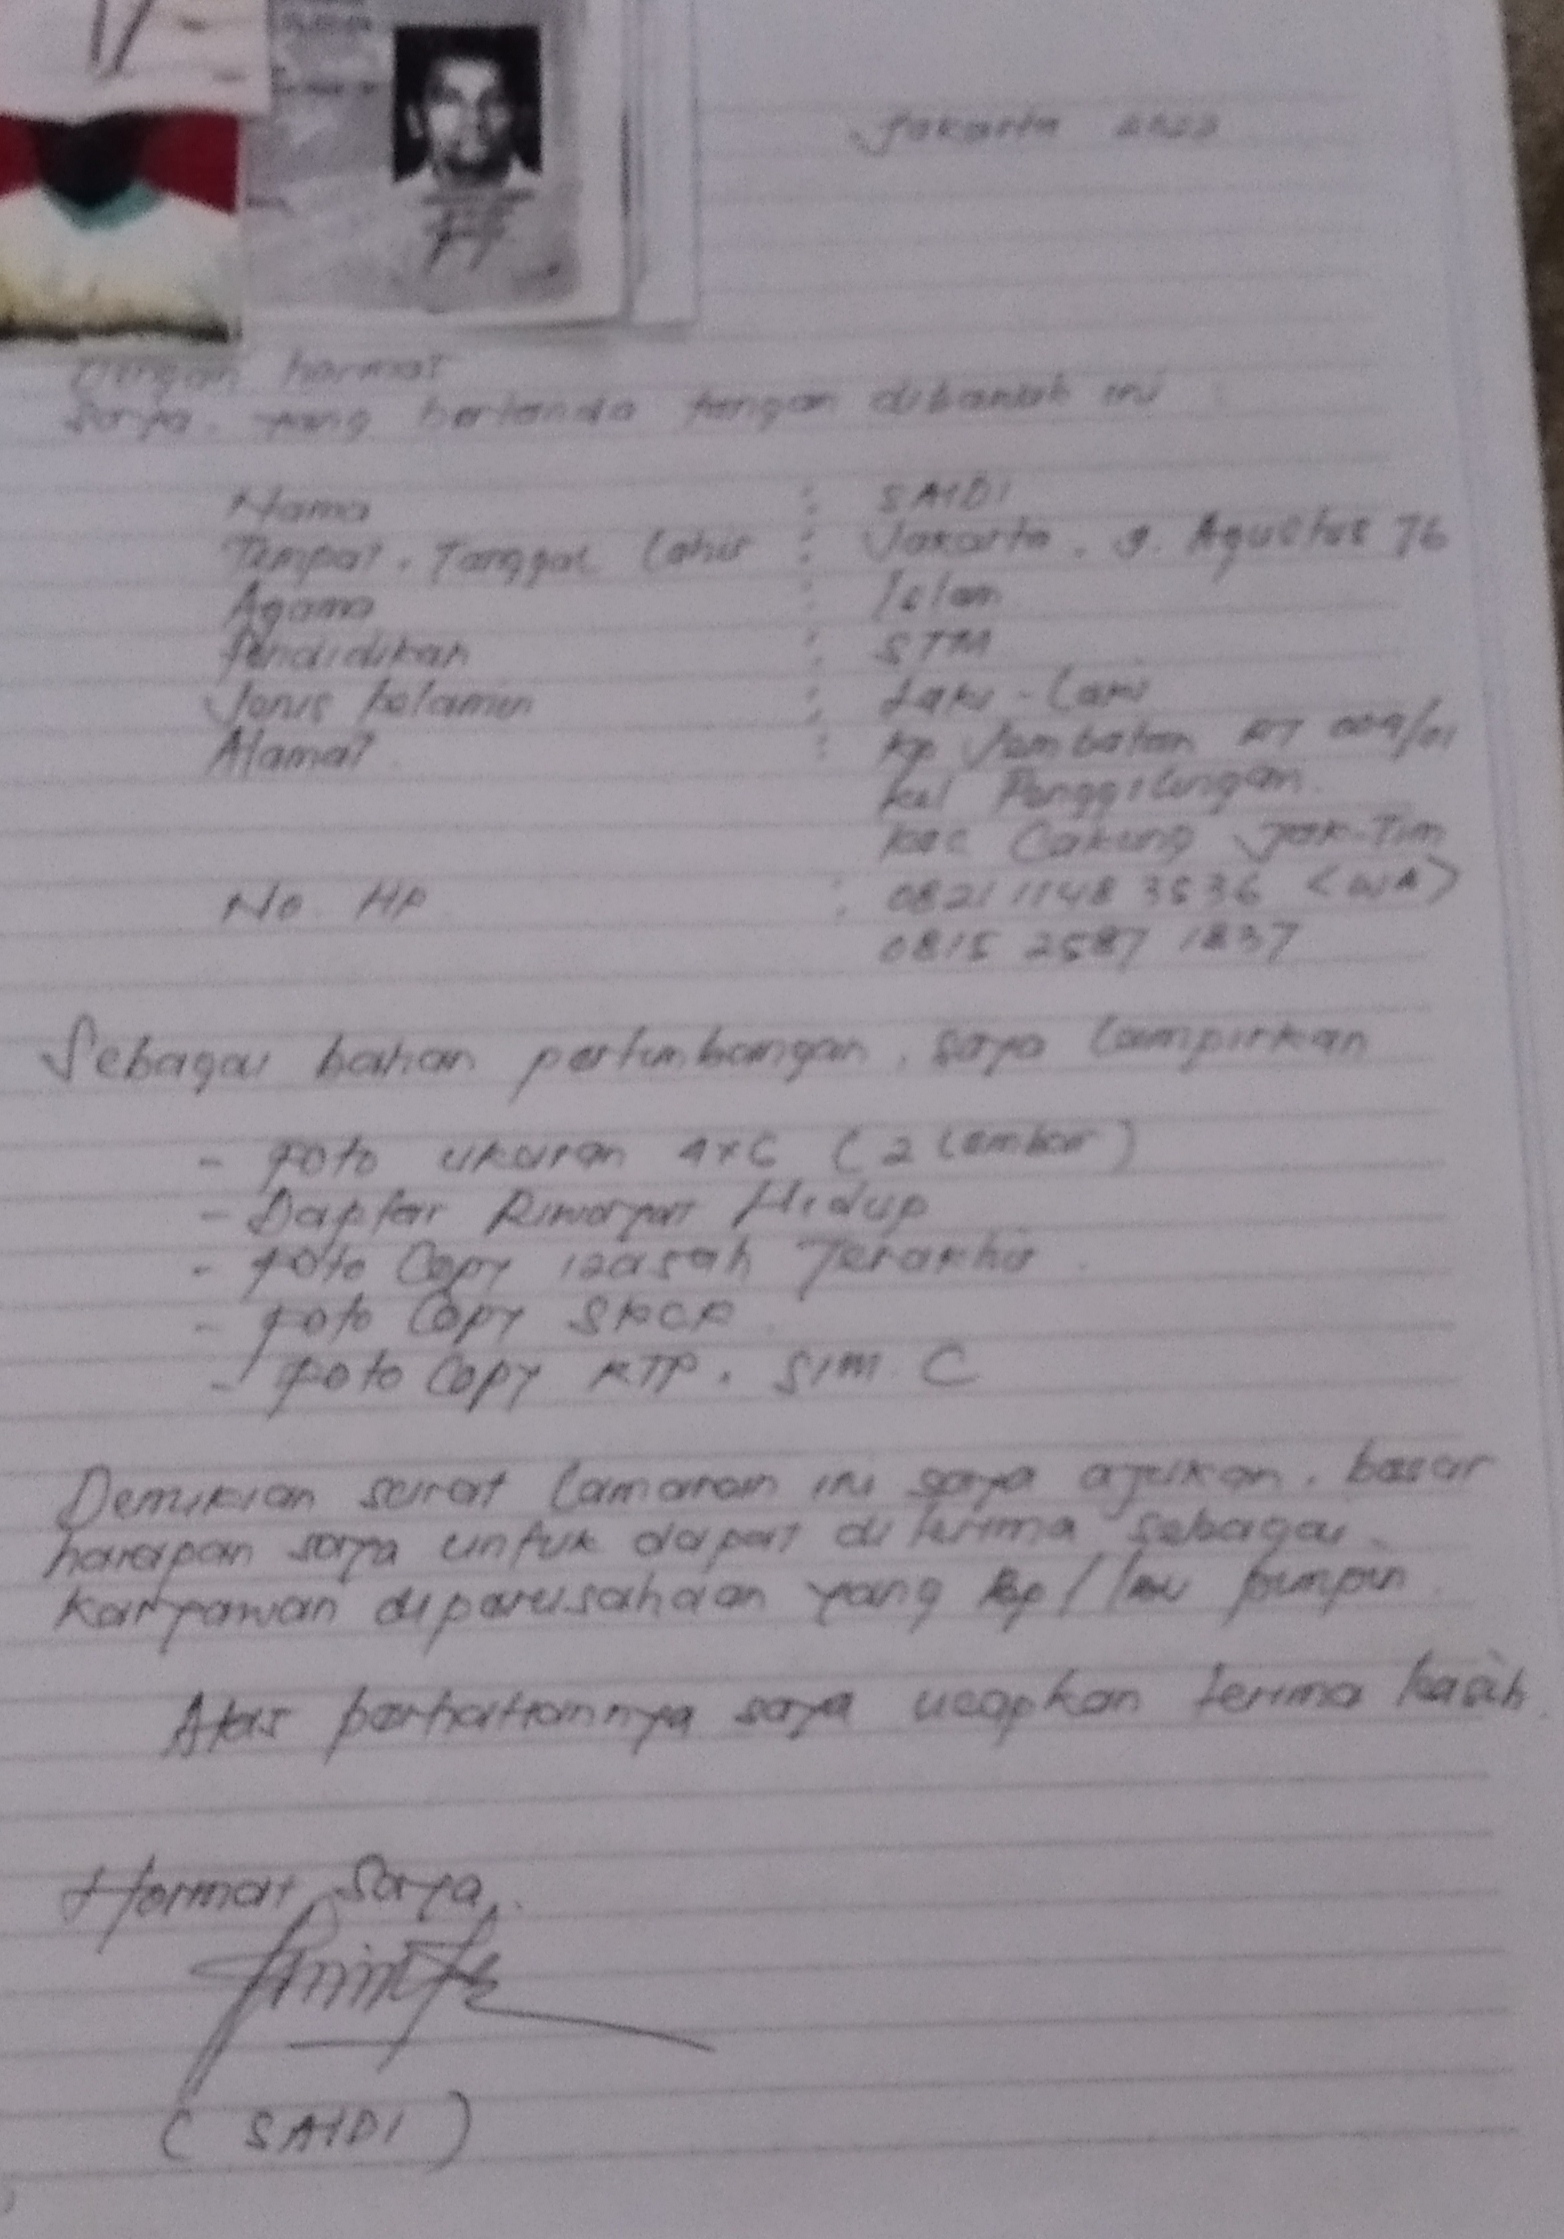 Jakarta 2023
Dengan hormat
Saya yang bertanda tangan dibawah ini :
Nama : SAIDI
Tempat, Tanggal Lahir : Jakarta, 9. Agustus 76
Agama : Islam
Pendidikan : STM
Jenis kelamin : Laki-Laki
Alamat : Kp Jembatan RT 009/01
Kel Penggilingan.
Kec Cakung Jak-Tim
No. HP : 0821 1148 3536 (WA)
0815 2587 1837
Sebagai bahan pertimbangan, saya lampirkan
- foto ukuran 4x6 (2 Lembar)
- Daftar Riwayat Hidup
- foto Copy izasah Terakhir.
- foto Copy SKCK.
- foto Copy KTP. SIM. C
Demikian surat lamaran ini saya ajukan, besar
harapan saya untuk dapat di terima sebagai
karyawan diperusahaan yang Bp/Ibu pimpin.
Atas perhatiannya saya ucapkan terima kasih.
Hormat Saya,
( SAIDI )